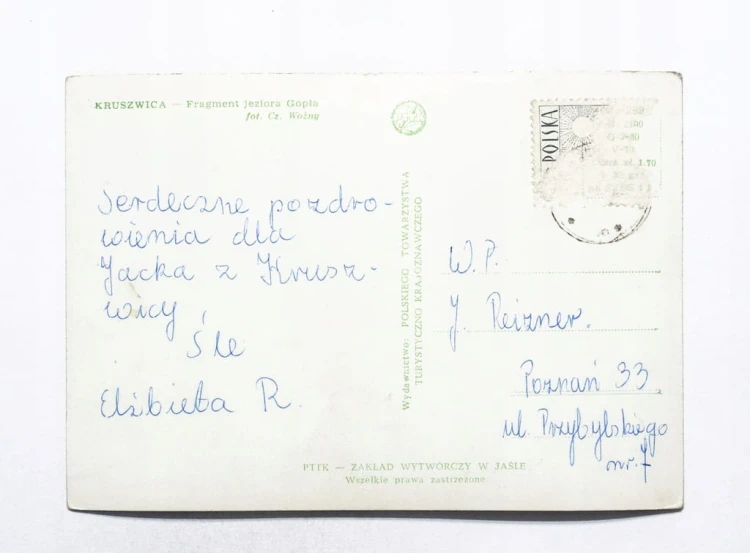 KRUSZWICA — Fragment jeziora Gopła
fot. Cz. Woźny
Serdeczne pozdro-
wienia dla
Jacka z Krusz-
wicy
Śle
Elżbieta R.
Wydawnictwo: POLSKIEGO TOWARZYSTWA
TURYSTYCZNO KRAJOZNAWCZEGO
POLSKA
1.70
W.P.
J. Reizner.
Poznań 33
ul. Przybylskiego
nr. 7
PTTK — ZAKŁAD WYTWÓRCZY W JAŚLE
Wszelkie prawa zastrzeżone